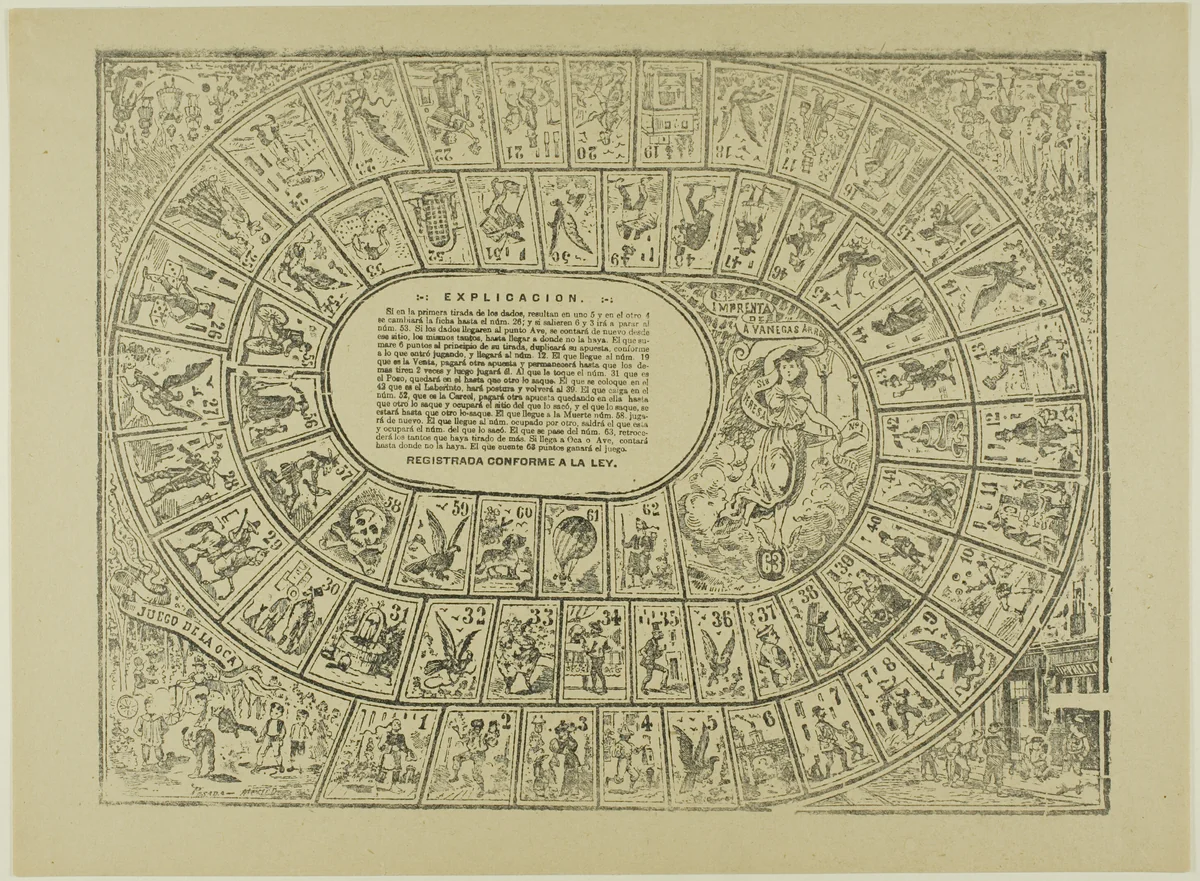 :-: EXPLICACION. :-:
Si en la primera tirada de los dados, resultan en uno 5 y en el otro 4
se cambiará la ficha hasta el núm. 26; y si salieren 6 y 3 irá a parar al
núm. 53. Si los dados llegaren al punto Ave, se contará de nuevo desde
ese sitio, los mismos tantos, hasta llegar a donde no la haya. El que su-
mare 6 puntos al principio de su tirada, duplicará su apuesta, conforme
a lo que entró jugando, y llegará al núm. 12. El que llegue al núm. 19
que es la Venta, pagará otra apuesta y permanecerá hasta que los de-
mas tiren 2 veces y luego jugará él. Al que le toque el núm. 31 que es
el Poso, quedará en él hasta que otro lo saque. El que se coloque en el
42 que es el Laberinto, hará postura y volverá al 39. El que caiga en el
núm. 52, que es la Carcel, pagará otra apuesta quedando en ella hasta
que otro lo saque y ocupará el sitio del que lo sacó, y el que lo saque, se
estará hasta que otro lo saque. El que llegue a la Muerte núm. 58. juga-
rá de nuevo. El que llegue al núm. ocupado por otro, saldrá el que está
y ocupará el núm. del que lo sacó. El que se pase del núm. 63, retroce-
derá los tantos que haya tirado de más. Si llega a Oca o Ave, contará
hasta donde no la haya. El que suente 63 puntos ganará el juego.
REGISTRADA CONFORME A LA LEY.
IMPRENTA
DE
A. VANEGAS ARR
JUEGO DE LA OCA
POSADA – MEXICO
1
2
3
4
5
6
7
8
9
10
11
12
14
15
17
18
19
20
21
22
23
24
25
26
27
28
29
30
31
32
33
34
35
36
37
38
39
40
41
42
44
45
46
47
48
49
50
51
52
53
54
55
56
57
58
59
60
61
62
63